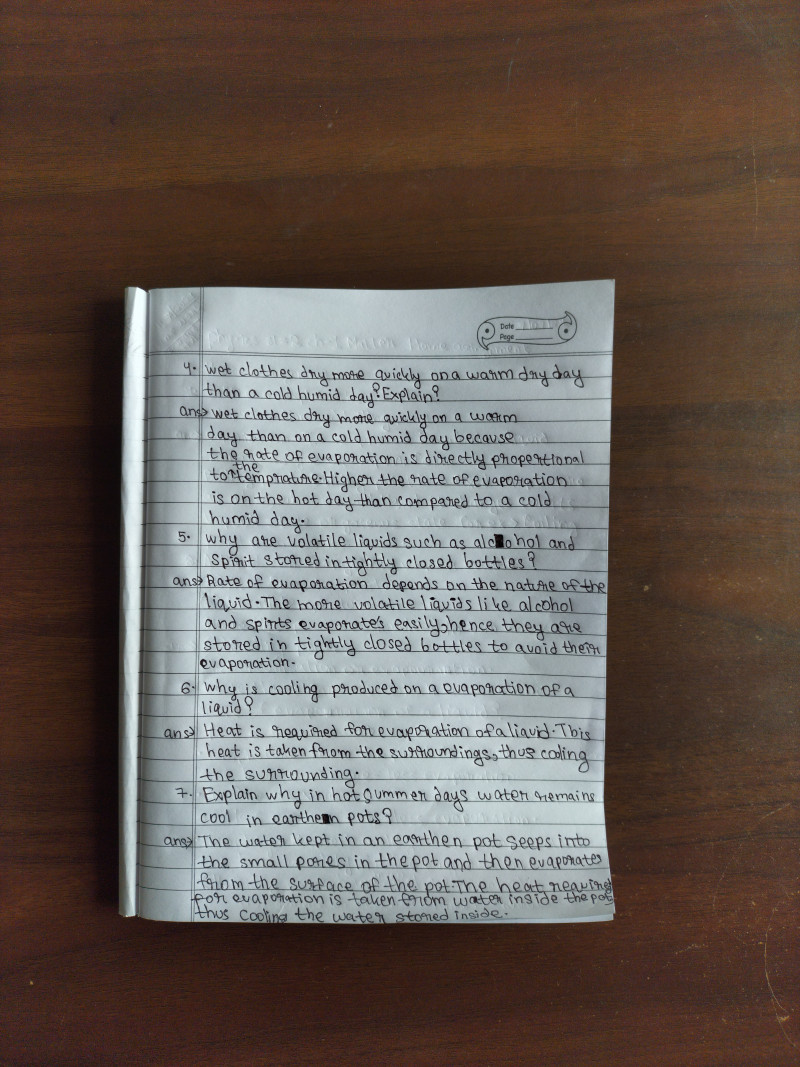 Date
Page
4. wet clothes dry more quickly on a warm dry day
than a cold humid day? Explain?
ans> wet clothes dry more quickly on a warm
day than on a cold humid day because
the rate of evaporation is directly propertional
to the temprature. Higher the rate of evaporation
is on the hot day than compared to a cold
humid day.
5. why are volatile liquids such as alcohol and
spirit stored in tightly closed bottles?
ans> Rate of evaporation depends on the nature of the
liquid. The more volatile liquids like alcohol
and spirts evaporates easily, hence they are
stored in tightly closed bottles to avoid their
evaporation.
6. why is cooling produced on a evaporation of a
liquid?
ans> Heat is required for evaporation of a liquid. This
heat is taken from the surroundings, thus cooling
the surrounding.
7. Explain why in hot summer days water remains
cool in earthen pots?
ans> The water kept in an earthen pot seeps into
the small pores in the pot and then evaporates
from the surface of the pot. The heat required
for evaporation is taken from water inside the pot
thus cooling the water stored inside.